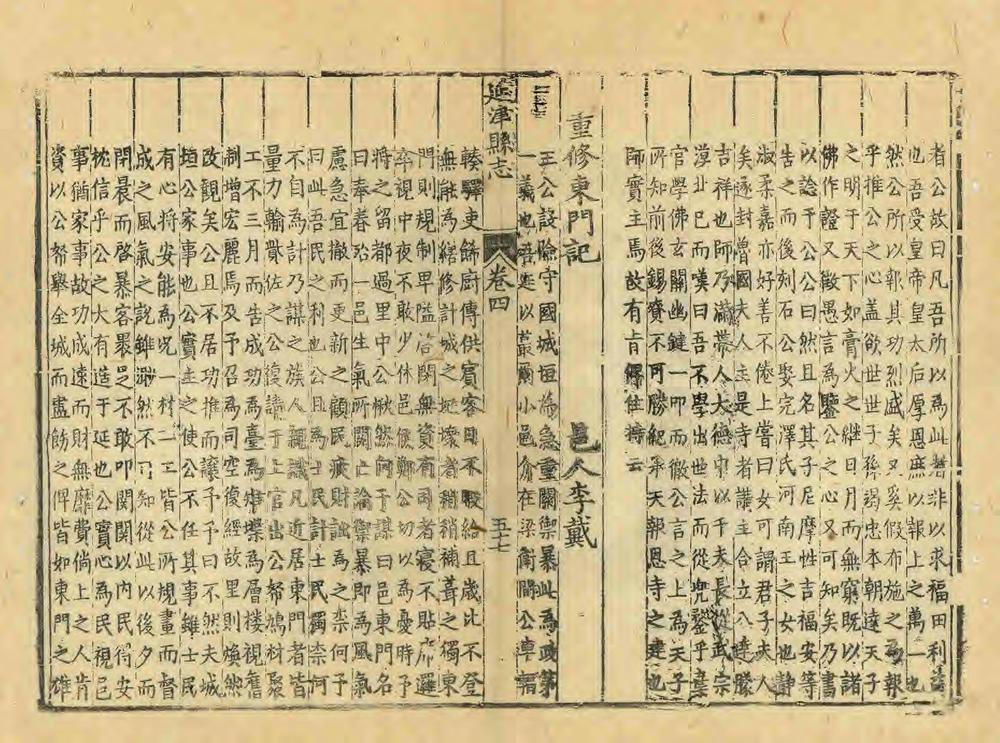 者公故曰凡吾所以為此者非以求福田利益
也吾受皇帝皇太后厚恩庶以報上之萬一也
然公所以報其功烈盛矣又奚假布施之予報
乎推公之心盖欲世世子孫竭忠本朝達天子
之明于天下如膏火之繼日月而無窮既以諸
佛作證又徵愚言為鑒公之心又可知矣乃書
以諗于公公曰然且名其子尼摩性吉福安等
告之而後刻石公娶完澤氏河南王之女也静
淑柔嘉亦好善不倦上嘗曰女可謂君子夫人
矣遂封曾國夫人主是寺者講主合立八達滕
吉祥也師乃灤蒂人大德中以千夫長從武宗
淳北巳而嘆曰吾不學出世法而從兜鍪乎棄
官學佛玄關幽鍵一叩而徹公言之上為天子
所知前後錫賚不可勝紀承天報恩寺之建也
師實主焉故有肯綽住持云
重修東門記 邑人李戴
王公設險守國城垣為急重關禦暴此為政第
一義也吾延以蕞爾小邑介在梁衛間公車輻
延津縣志 卷四 五十七
輳驛吏飾厨傳供賓客日不暇給且歲比不登
無能為繕修計城之圮壞者稍稍補葺之獨東
門則規制卑隘啓閉無資有司者寢不貼席邏
卒視中夜不敢少休邑侯鄭公切以為憂時予
將之留都過里中公楸然向予謀曰邑東門名
曰奉春殆一邑生氣所關無論禦暴即為風氣
慮急宜撤而更新之顧民疲財詘為之柰何予
曰此吾民之利也公且為士民計士民獨柰何
不自為計乃謀之族人親識凡近居東門者皆
量力輸貲佐之公復請于上官出公帑鳩材聚
工不三月而告成功為臺為雉堞為層楼視舊
制增宏麗焉及予召為司空復經故里則煥然
改觀矣公且不居功推而讓予予曰不然夫城
垣公家事也公實主之使公不任其事雖士民
有心將安能為况一材二工皆公所規畫而督
成之風氣之説雖渺然不可知從此以後夕而
閉晨而啓暴客睘足不敢叩関関以内民得安
枕信乎公之大有造于延也公實心為民視邑
事猶家事故功成速而財無靡費倘上之人肯
資以公帑舉全城而盡飭之俾皆如東門之雄